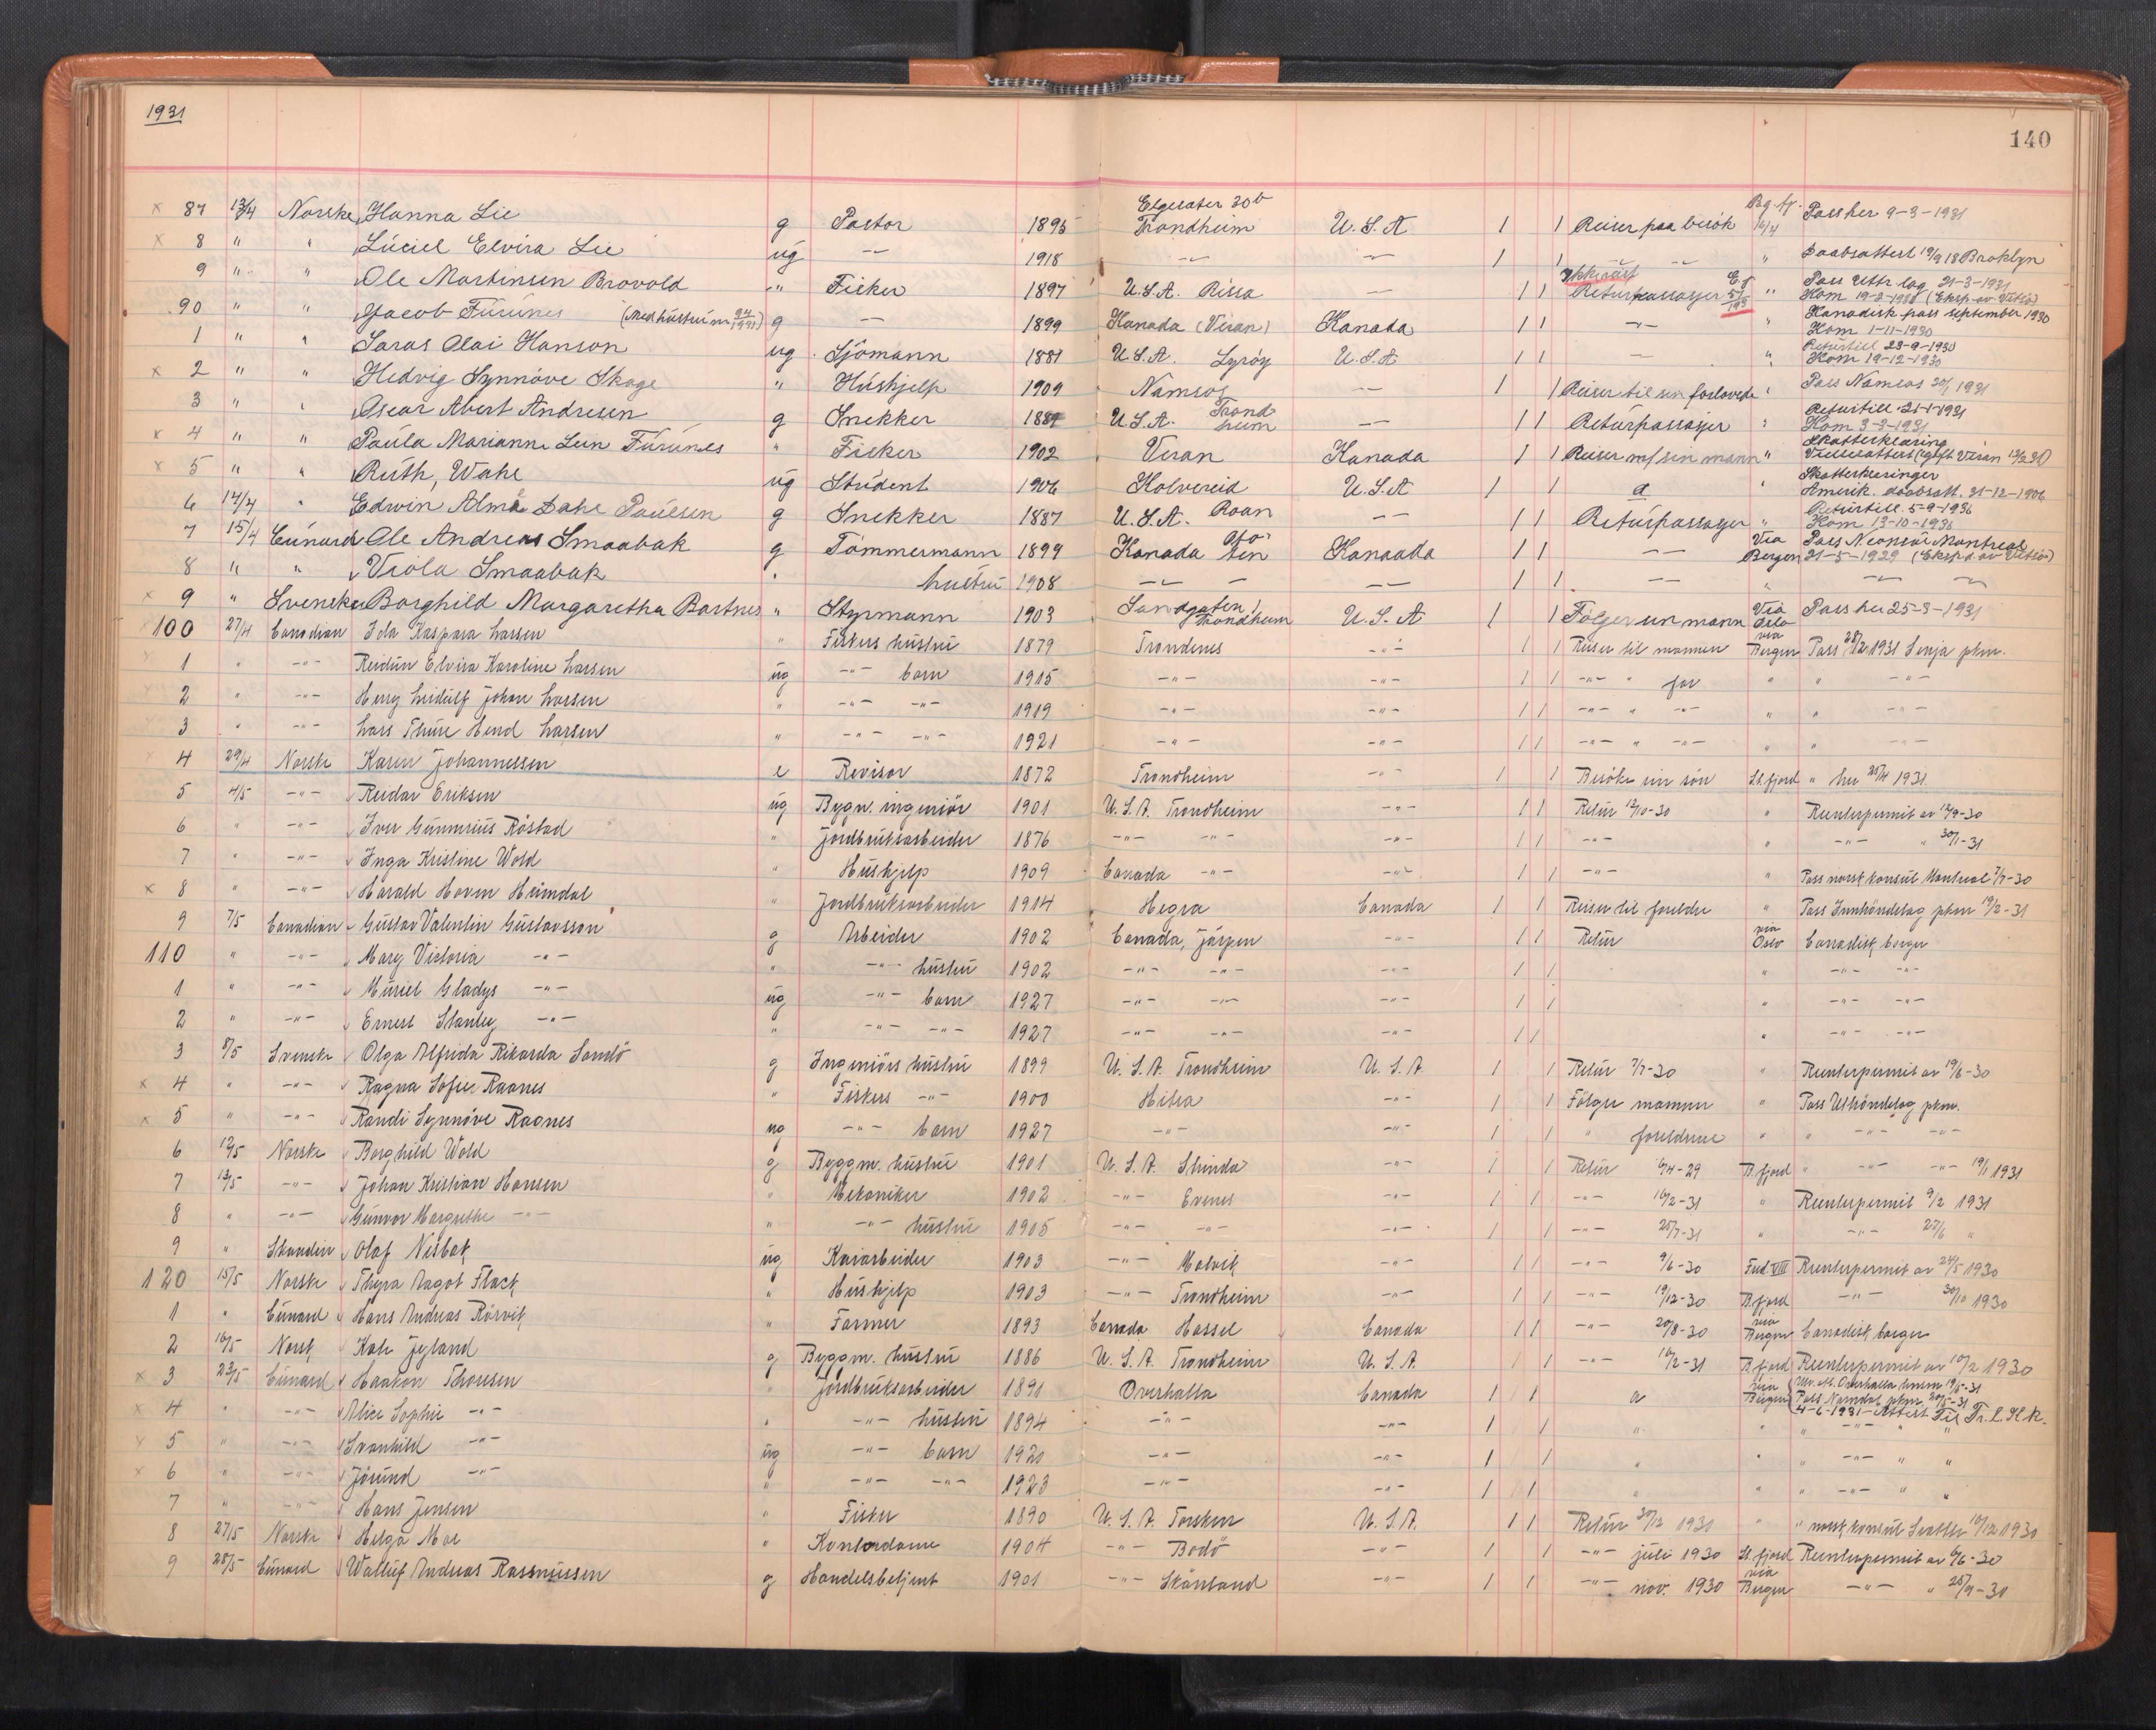 1931
140
x 87 13/4 Norske Hanna Lie g Pastor 1895 Elgesater 30b Trondheim U.S.A 1 1 Reiser paa besök Bg.fj. 16/4 Pass her 9-3-1931
x 8 " " Luciel Elvira Lie ug — 1918 — — 1 1 — — " Daabsattest 19/9 18 Broklyn
9 " " Ole Martinsen Brovold " Fisker 1897 U.S.A. Rissa — 1 1 Returpassager " Pass Uttr.lag 21-3-1931 Kom 19-2-1930 (Eksp. av Vitsö)
90 " " Jacob Furunes (Med hustru nr 94/1931) g — 1899 Kanada (Veran) Kanada 1 1 — " Kanadisk pass september 1930 Kom 1-11-1930
1 " " Saras Olai Hanson ug Sjömann 1881 U.S.A. Lyröy U.S.A 1 1 — " Returtill 23-9-1930 Kom 19-12-1930
x 2 " " Hedvig Synnöve Skage " Hushjelp 1909 Namsos — 1 1 Reiser til sin forlovede " Pass Namsos 1931
3 " " Oscar Abert Andresen g Snekker 1889 U.S.A. Trondheim — 1 1 Returpassager " Returtill 21-1-1931 Kom 3-3-1931
x 4 " " Paula Marianne Lein Furunes " Fisker 1902 Veran Kanada 1 1 Reiser m/ sin mann " Skatterklaring Vielsesattest (gift Veran 13/2 31)
x 5 " " Ruth, Wahl ug Student 1906 Kolvereid U.S.A 1 1 a " Skatterklæringer Amerik. daabsatt. 31-12-1906
6 14/4 " Edwin Alma Dahl Paulsen g Snekker 1887 U.S.A. Roan — 1 1 Returpassager " Returtill. 5-9-1930 Kom 13-10-1930
7 15/4 Cunard Ole Andreas Smaabak g Tömmermann 1899 Kanada Kanaada 1 1 — Via Bergen Pass Montreal 21-5-1929 (Eksp.d av Vitsö)
8 " " Viola Smaabak " hustru 1908 — — — 1 1 — " — —
x 9 " Svenske Borghild Margaretha Bartnes " Styrmann 1903 Sandgaten 1 Trondheim U.S.A 1 1 Følger sin mann Via Oslo Pass her 25-3-1931
100 27/4 Canadian Ida Kaspara Larsen " Fiskers hustru 1879 Trondenes -"- 1 1 Reiser til mannen via Bergen Pass 28/2 1931 Senja pkm.
1 " -"- Reidun Elvira Karoline Larsen ug -"- barn 1915 -"- -"- 1 1 -"- " far " " -"-
2 " -"- Herry Leidulf Johan Larsen " -"- -"- 1919 -"- -"- 1 1 -"- " -"- " " -"-
3 " -"- Lars Thure Hend Larsen " -"- -"- 1921 -"- -"- 1 1 -"- " -"- " " -"-
4 29/4 Norske Karen Johannessen e Revisor 1872 Trondheim -"- 1 1 Besöke sin sön St.fjord " her 25/4 1931
5 4/5 -"- Reidar Eriksen ug Bygn. ingeniör 1901 U.S.A. Trondheim -"- 1 1 Retur 12/10-30 " Reenterpermit av 12/9-30
6 " -"- Iver Gunnerius Röstad " Jordbruksarbeider 1876 -"- -"- -"- 1 1 -"- " -"- " 30/1-31
7 " -"- Inga Kristine Wold " Hushjelp 1909 Canada -"- -"- 1 1 -"- " Pass norsk konsul Montreal 7/7-30
x 8 " -"- Harald Hoven Heimdal " Jordbruksarbeider 1914 Hegra Canada 1 1 Reiser til foreldre " Pass Inntröndelag pkm 19/2-31
9 7/5 Canadian Gustav Valentin Gustavsson g Arbeider 1902 Canada, Järpen -"- 1 1 Retur via Oslo Canadisk borger
110 " -"- Mary Victoria -"- " -"- hustru 1902 -"- -"- -"- 1 1 " -"- -"-
1 " -"- Muriel Gladys -"- ug -"- barn 1927 -"- -"- -"- 1 1 " -"- -"-
2 " -"- Ernest Stanley -"- " -"- -"- 1927 -"- -"- -"- 1 1 " -"- -"-
3 8/5 Svenske Olga Alfrida Rikarda Sandö g Ingeniörs hustru 1899 U.S.A. Trondheim U.S.A 1 1 Retur 7/7-30 " Reenterpermit av 19/6-30
x 4 " -"- Ragna Sofie Raanes " Fiskers -"- 1900 Hitra -"- 1 1 Fölger mannen " Pass Uttröndelag pkm.
x 5 " -"- Randi Synnöve Raanes ug -"- barn 1927 -"- -"- 1 1 " foreldrene " " -"- -"-
6 12/5 Norske Borghild Wold g Byggm. hustru 1901 U.S.A. Strinda -"- 1 1 Retur 6/4-29 B.fjord " -"- -"- 19/1 1931
7 13/5 -"- Johan Kristian Hansen " Mekaniker 1902 -"- Evenes -"- 1 1 -"- 16/2-31 " Reenterpermit 9/2 1931
8 " -"- Gunvor Margrethe -"- " -"- hustru 1905 -"- -"- -"- 1 1 -"- 25/7-31 " -"- 27/6 "
9 " Skandin Olaf Nesbak ug Kaiarbeider 1903 -"- Malvik -"- 1 1 -"- 9/6-30 Fred.VIII Reenterpermit av 24/5 1930
120 15/5 Norske Thyra Aagot Flack " Hushjelp 1903 -"- Trondheim -"- 1 1 -"- 19/12-30 B.fjord -"- 30/10 1930
1 " Cunard Hans Andreas Rörvik " Farmer 1893 Canada Hassel Canada 1 1 -"- 20/8-30 via Bergen Canadisk borger
2 16/5 Norsk Kate Jyland g Byggm. hustru 1886 U.S.A. Trondheim U.S.A. 1 1 -"- 16/2-31 B.fjord Reenterpermit av 10/2 1930
x 3 23/5 Cunard Haakon Thorsen " Jordbruksarbeider 1891 Overhalla Canada 1 1 a via Bergen Utv. att. Overhalla lensm 19/5-31 Pass Namdal pkm. 20/5-31
x 4 " -"- Alice Sophie -"- " -"- hustru 1894 -"- -"- 1 1 " " 4-6-1931-Attest Til Tr.L.H.k.
x 5 " -"- Svanhild -"- ug -"- barn 1920 -"- -"- 1 1 " " " -"- " "
x 6 " -"- Jörund -"- " -"- -"- 1923 -"- -"- 1 1 " " " -"- " "
7 " -"- Hans Jensen " Fisker 1890 U.S.A. Torsken U.S.A. 1 1 Retur 30/12 1930 " " norsk konsul Seattle 10/12 1930
8 27/5 Norske Helga Moe " Kontordame 1904 -"- Bodö -"- 1 1 -"- juli 1930 St.fjord Reenterpermit av 6/6-30
9 28/5 Cunard Walluf Andreas Rasmussen g Handelsbetjent 1901 -"- Skånland -"- 1 1 -"- nov. 1930 via Bergen -"- " 25/9-30